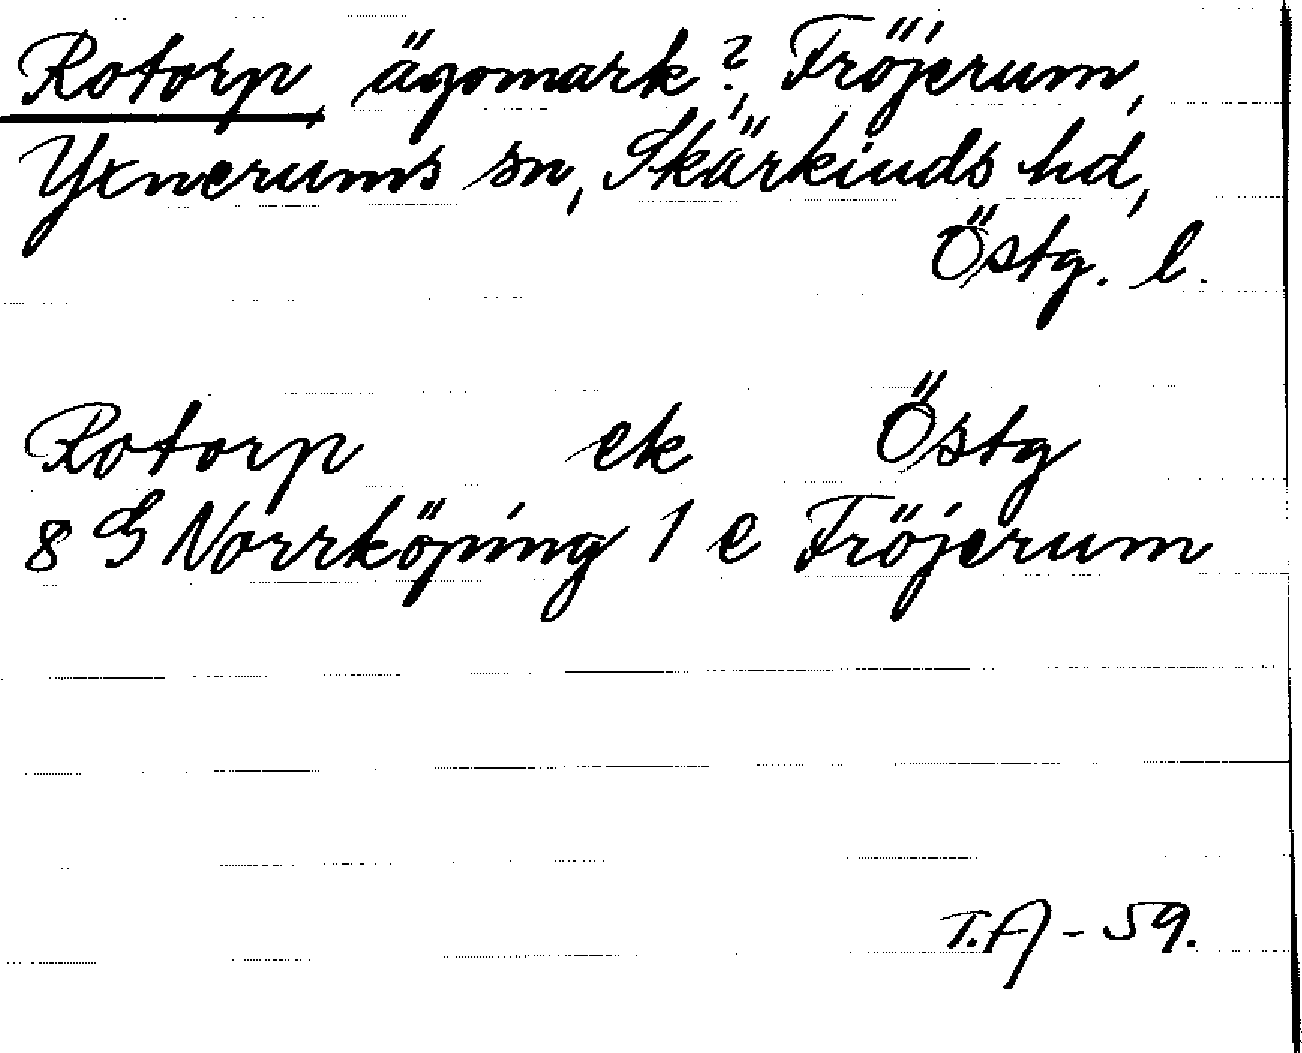 Rotorp, ägomark?, Fröjerum,
Yxnerums sn, Skärkinds hd,
Östg. l.
Rotorp ek Östg
8 G Norrköping 1 e Fröjerum
T.A - 59.